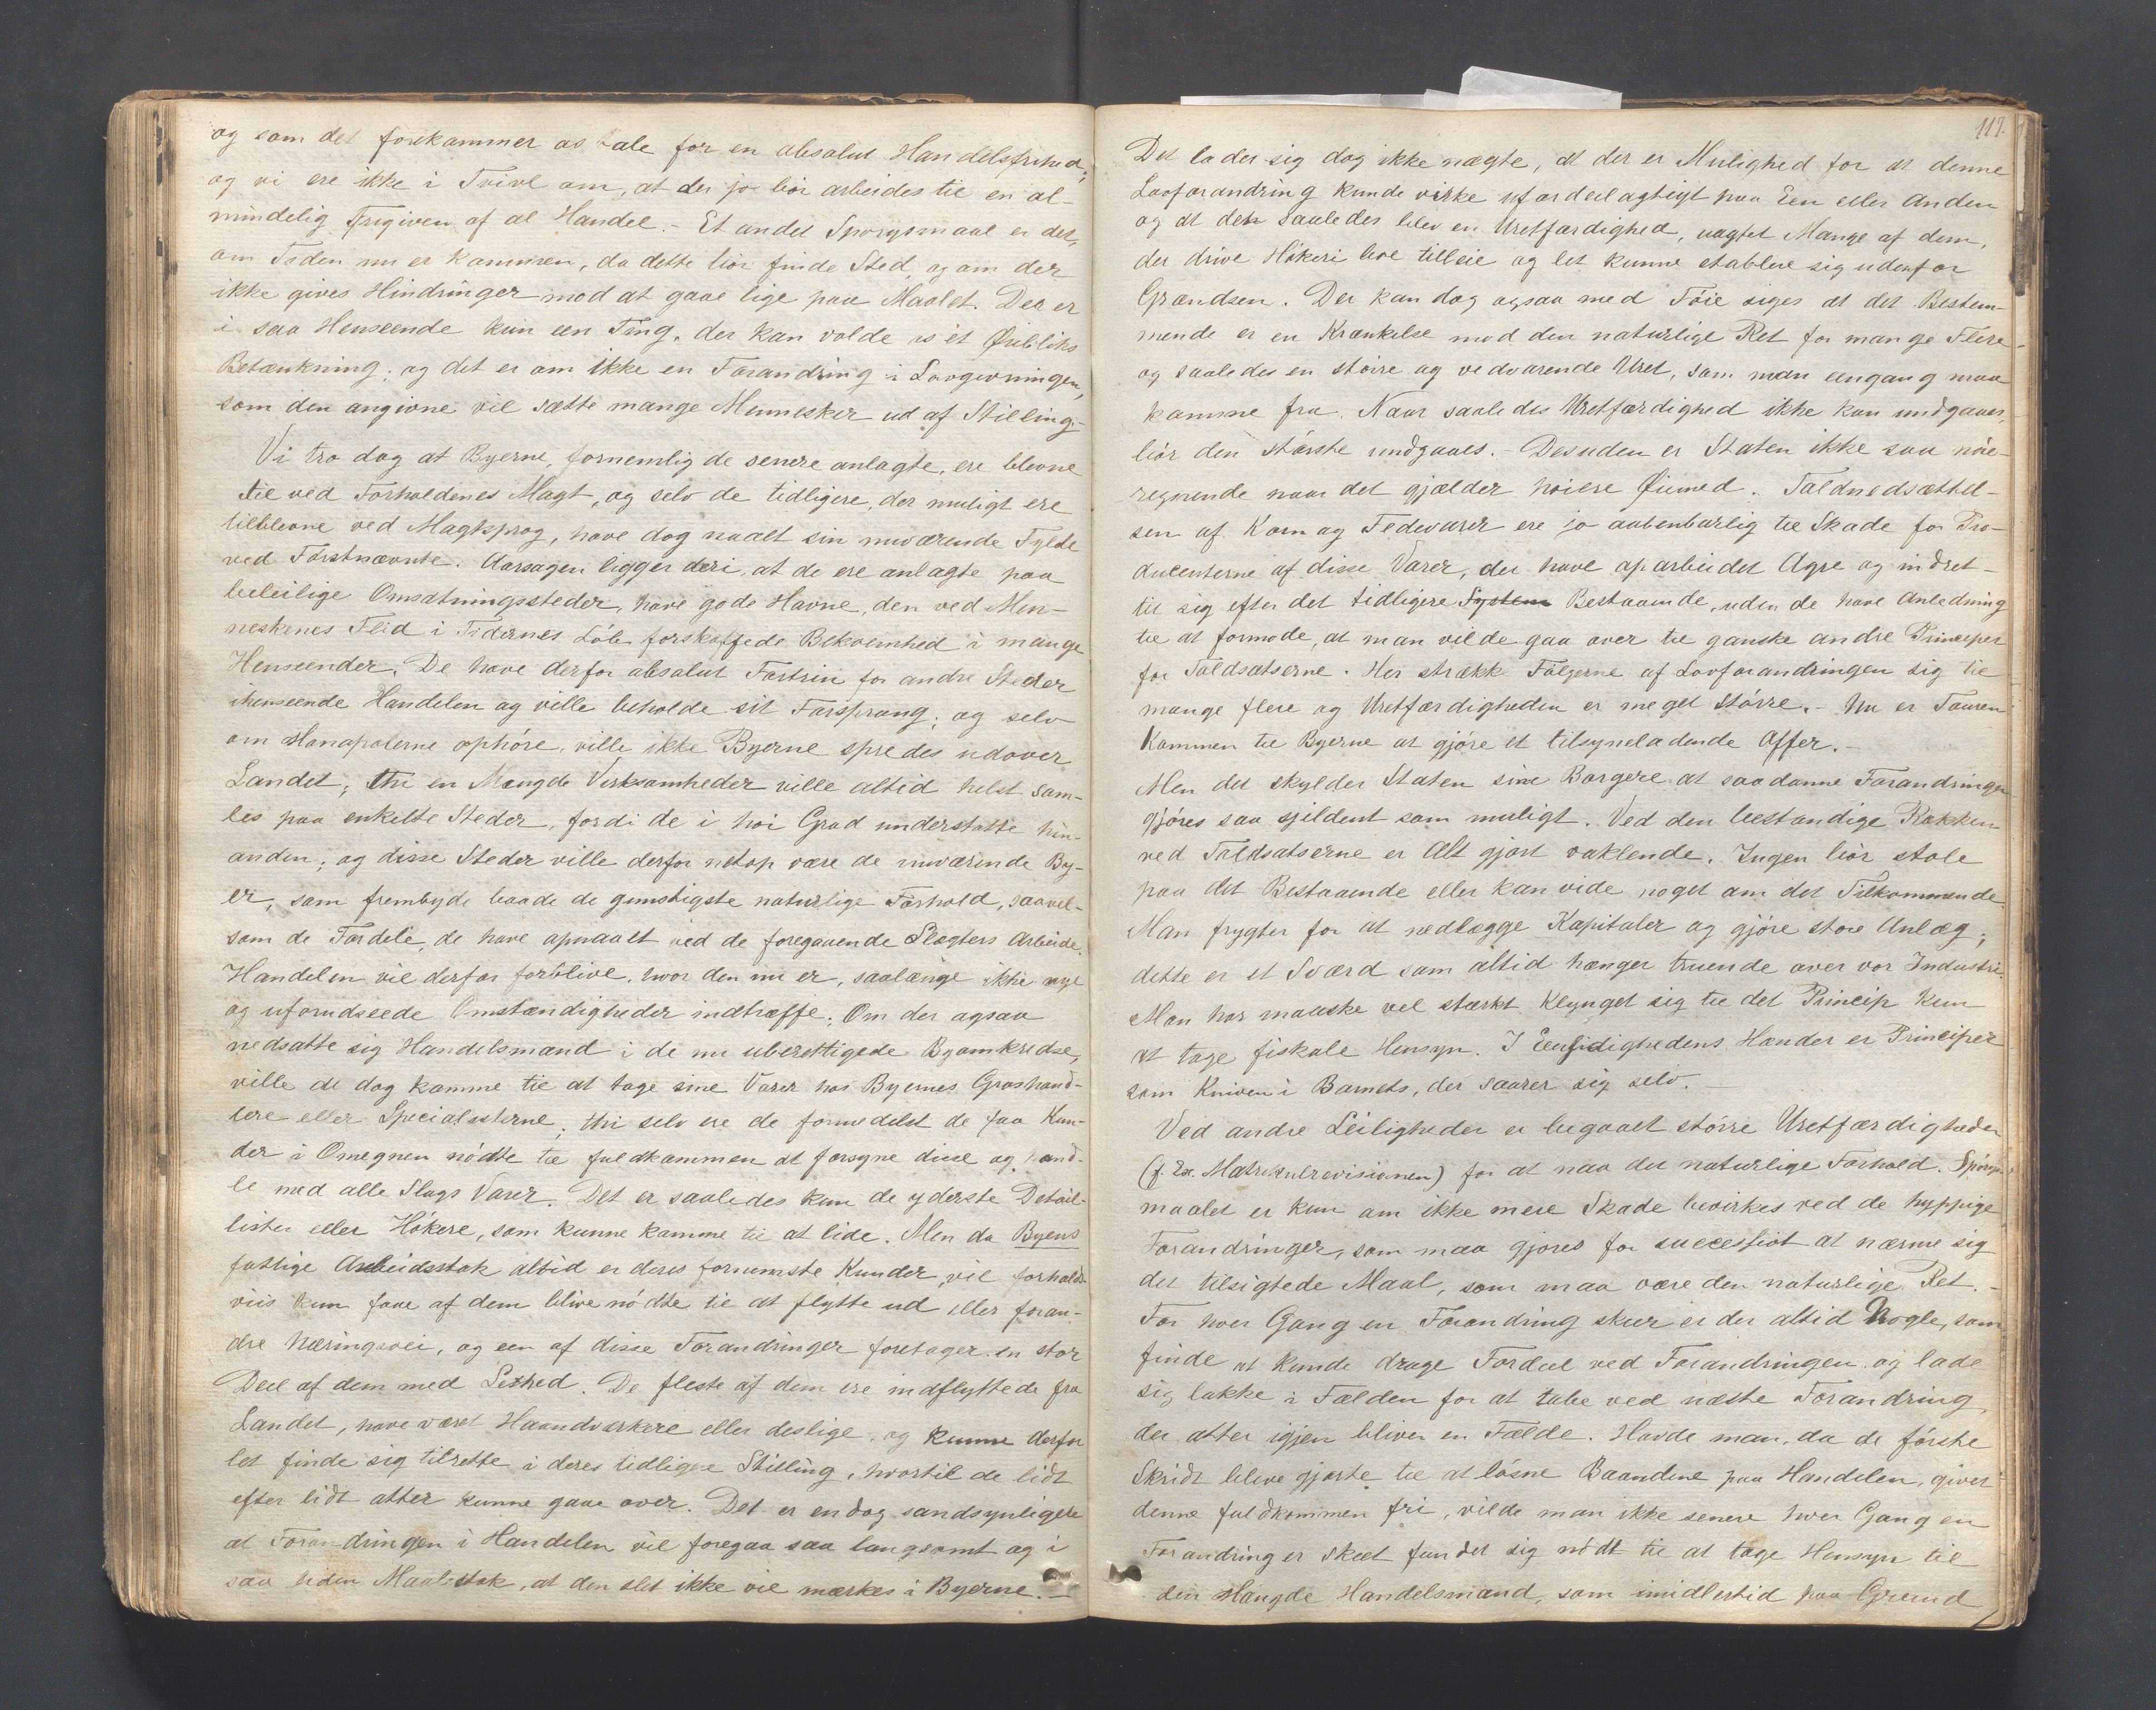 og som det forekommer os tale for en absolut Handelsfrihed;
og vi ere ikke i Tvivl om, at der jo bör arbeides til en al-
mindelig Frigiven af al Handel. - Et andet Spörgsmaal er det,
om Tiden nu er kommen, da dette bör finde Sted, og om der
ikke gives Hindringer mod at gaae lige paa Maalet. Der er
i saa Henseende kun een Ting, der kan volde os et Öiebliks
Betænkning; og det er om ikke en Forandring i Lovgivningen,
som den angivne vil sætte mange Mennesker ud af Stilling. -
Vi tro dog at Byerne, fornemlig de senere anlagte, ere blevne
til ved Forholdenes Magt, og selv de tidligere, der muligt ere
tilblevne ved Magtsprog, have dog naaet sin nuværende Fylde
ved Förstnævnte. Aarsagen ligger deri, at de ere anlagte paa
beleilige Omsætningssteder, have gode Havne, den ved Men-
neskenes Flid i Tidernes Löb forskaffede Bekvemhed i mange
Henseender. De have derfor absolut Fortrin for andre Steder
i henseende Handelen og ville beholde sit Forsprang; og selv
om Monopolerne ophöre, ville ikke Byerne spredes udover
Landet; thi en Mængde Virksomheder ville altid helst sam-
les paa enkelte Steder, fordi de i höi Grad understötte hin-
anden; og disse Steder ville derfor netop være de nuværende By-
er, som frembyde baade de gunstigste naturlige Forhold, saavel-
som de Fordele, de have opnaaet ved de foregaaende Slægters Arbeide.
Handelen vil derfor forblive, hvor den nu er, saalænge ikke nye
og uforudseede Omstændigheder indtræffe. Om der ogsaa
nedsatte sig Handelsmænd i de nu uberettigede Byomkredse,
ville de dog komme til at tage sine Varer hos Byernes Groshand-
lere eller Specialisterne; thi selv ere de formedelst de faa Kun-
der i Omegnen nödte til fuldkommen at forsyne disse og hand-
le med alle Slags Varer. Det er saaledes kun de yderste Detail-
lister eller Hökere, som kunne komme til at lide. Men da Byens
fattige Arbeidsstok altid er deres fornemste Kunder, vil forholds-
viis kun faae af dem blive nödte til at flytte ud eller foran-
dre Næringsvei, og een af disse Forandringer foretager en stor
Deel af dem med Lethed. De fleste af dem ere indflyttede fra
Landet, have været Haandværkere eller deslige og kunne derfor
let finde sig tilrette i deres tidligere Stilling, hvortil de lidt
efter lidt atter kunne gaae over. Det er endog sandsynligere
at Forandringen i Handelen vil foregaa saa langsomt og i
saa liden Maalestok, at den slet ikke vil mærkes i Byerne. -
117.
Det lader sig dog ikke nægte, at der er Mulighed for at denne
Lovforandring kunde virke ufordeelagtigt paa Een eller Anden
og at den saaledes blev en Uretfærdighed, uagtet Mange af dem,
der drive Hökeri leve tilleie og let kunne etablere sig udenfor
Grændsen. Der kan dog ogsaa med Föie siges at det Bestem-
mende er en Krænkelse mod den naturlige Ret for mange Flere
og saaledes en större og vedvarende Uret, som man eengang maa
komme fra. Naar saaledes Uretfærdighed ikke kan undgaaes,
bör den störste undgaaes. - Desuden er Staten ikke saa nöie-
regnende naar det gjælder höiere Öiemed. Toldnedsættel-
sen af Korn og Fedevarer ere jo aabenbarlig til Skade for Pro-
ducenterne af disse Varer, der have oparbeidet Agre og indret-
tit sig efter det tidligere System Bestaaende, uden de have Anledning
til at formode, at man vilde gaa over til ganske andre Principer
for Toldsatserne. Her strækk Fölgerne af Lovforandringen sig til
mange flere og Uretfærdigheden er meget Större. - Nu er Touren
kommen til Byerne at gjöre et tilsyneladende Offer. -
Men det skylder Staten sine Borgere at saadanne Forandringer
gjöres saa sjildent som muligt. Ved den bestandige Rokken
ved Toldsatserne er Alt gjort vaklende. Ingen bör stole
paa det Bestaaende eller kan vide noget om det Tilkommende
Man frygter for at nedlægge Kapitaler og gjöre store Anlæg;
dette er et Sværd som altid hænger truende over vor Industri.
Man har maaske vel stærkt klynget sig til det Princip kun
at tage fiskale Hensyn. I Eensidighedens Hænder er Principer
som Kniven i Barnets, der saarer sig selv. -
Ved andre Leiligheder er begaaet större Uretfærdigheder
(f. Ex. Matrikulrevisionen) for at naa det naturlige Forhold. Spörgs-
maalet er kun om ikke mere Skade bevirkes ved de hyppige
Forandringer, som maa gjöres for successivt at nærme sig
det tilsigtede Maal, som maa være den naturlige Ret. -
For hver Gang en Forandring skeer er der altid Nogle, som
finde at kunde drage Fordeel ved Forandringen og lade
sig lokke i Fælden for at tabe ved næste Forandring,
der atter igjen bliver en Fælde. Havde man, da de förste
Skridt bleve gjorte til at lösne Baandene paa Handelen, givet
denne fuldkommen fri, vilde man ikke senere hver Gang en
Forandring er skeet fundet sig nödt til at tage Hensyn til
den Mængde Handelsmænd, som imidlertid paa Grund